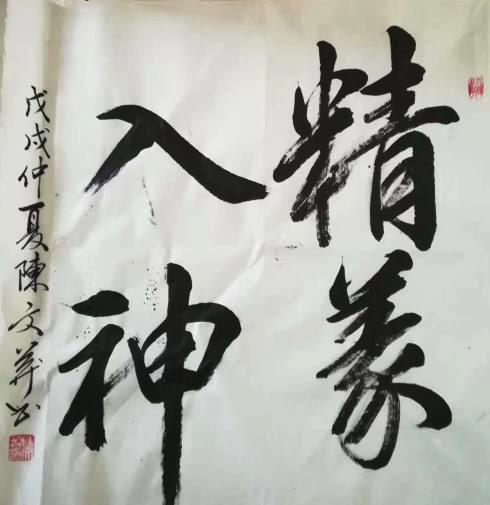 精義
入神
戊戌仲夏陳文華书